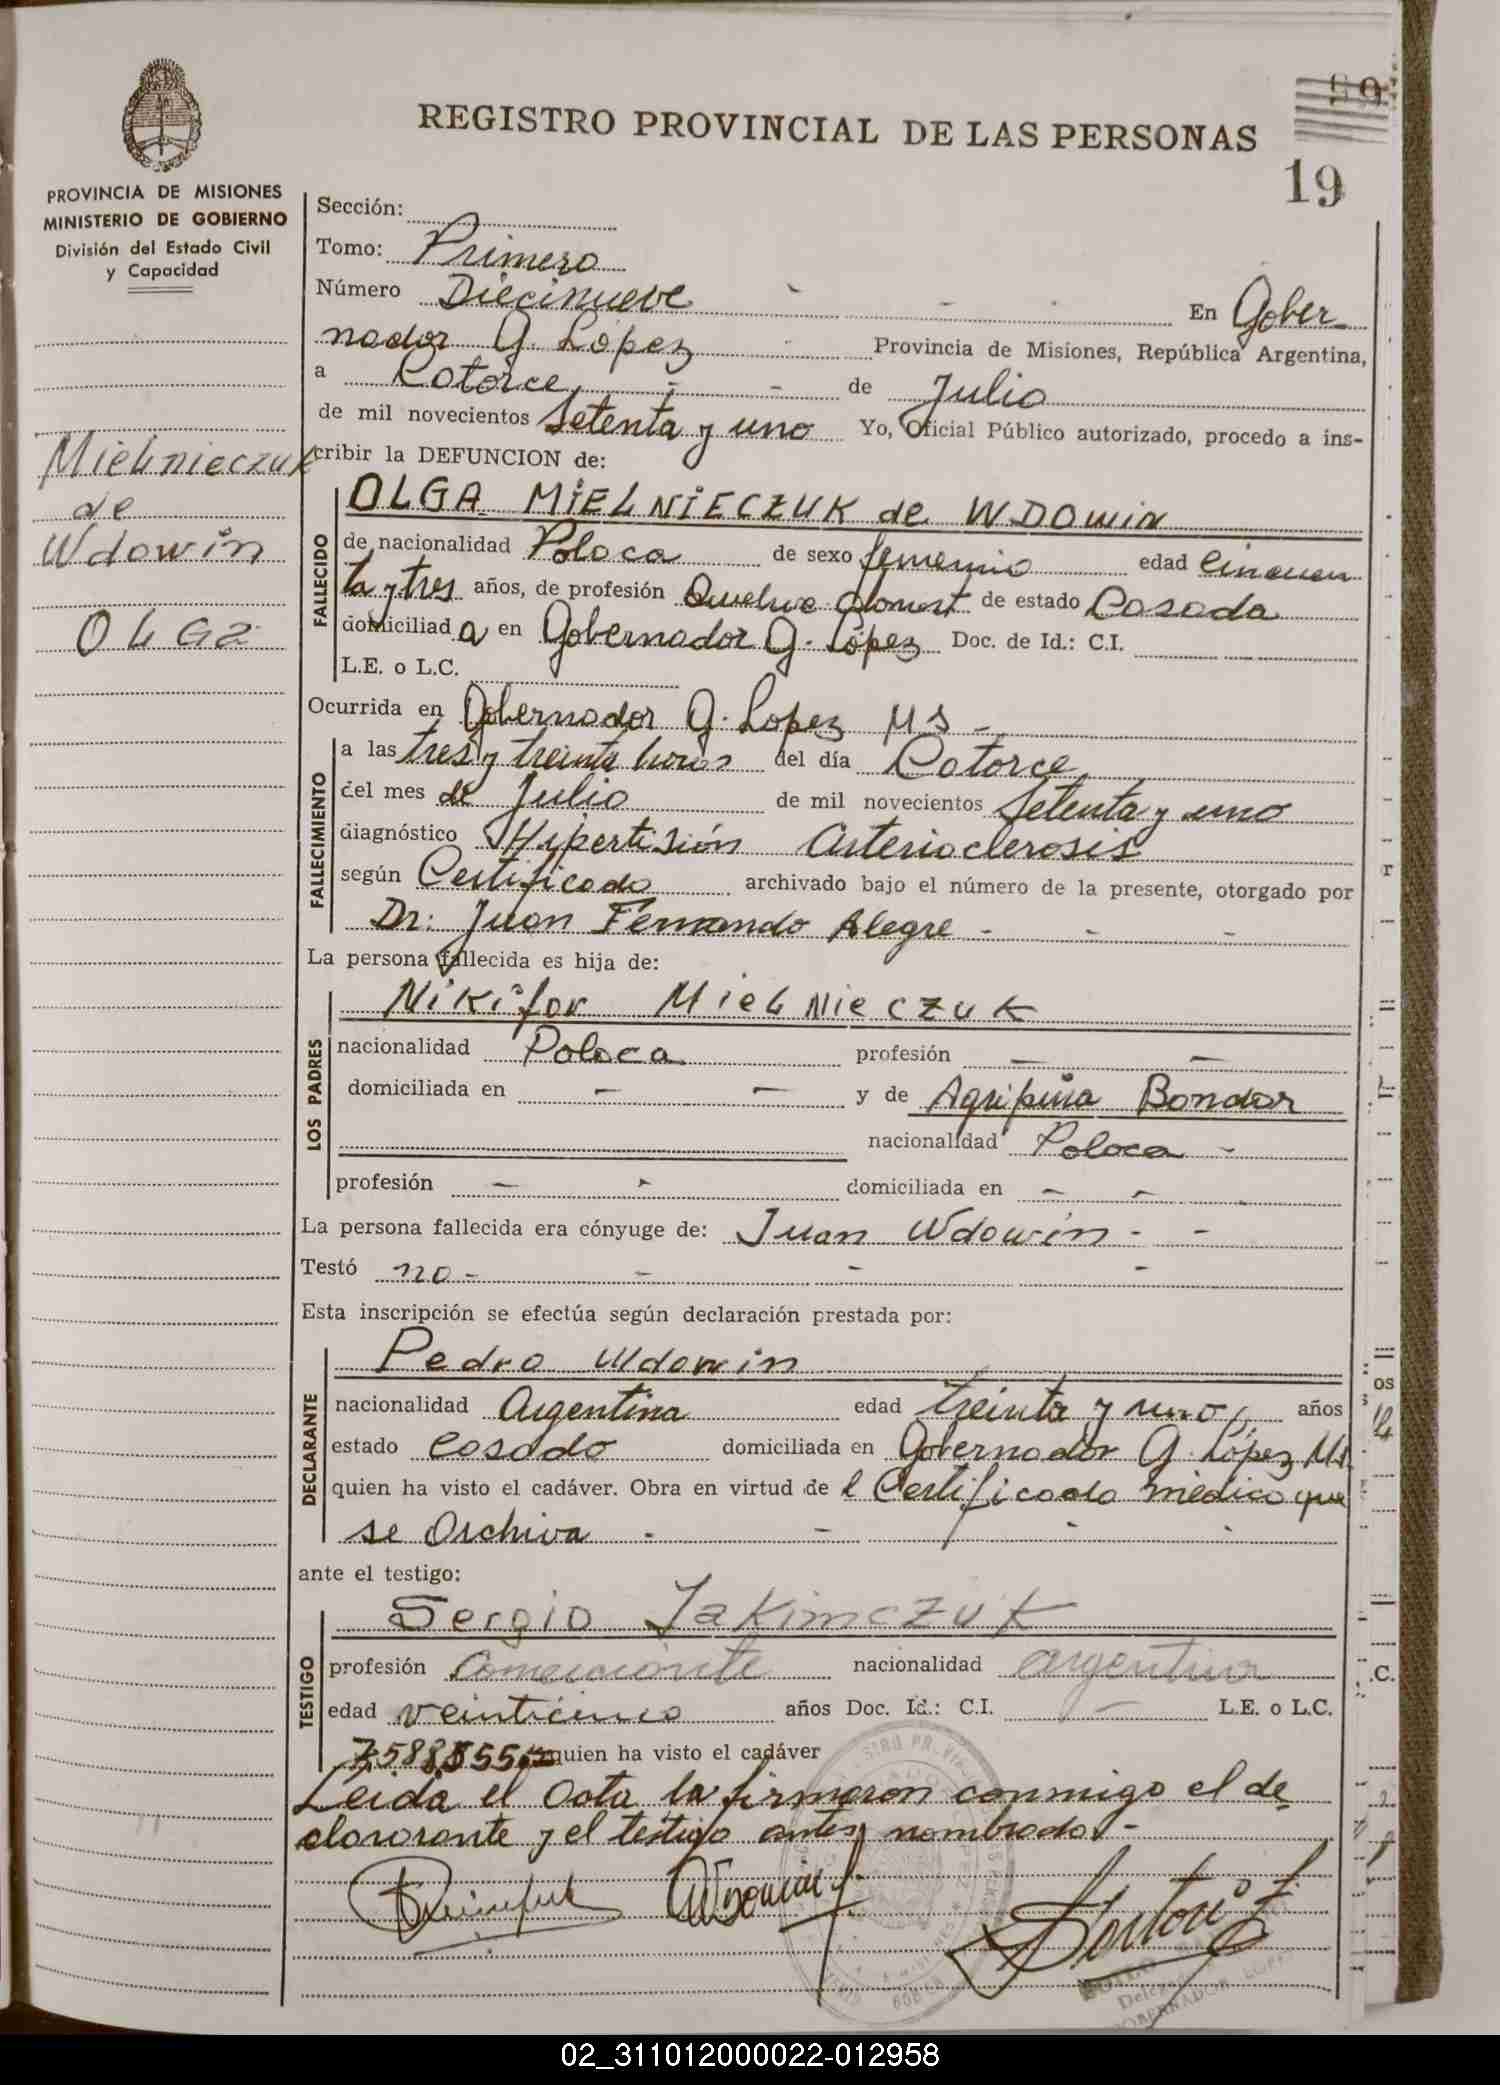 REGISTRO PROVINCIAL DE LAS PERSONAS
19
PROVINCIA DE MISIONES
MINISTERIO DE GOBIERNO
División del Estado Civil
y Capacidad
Mielnieczuk
de
Wdowin
OLGa
Sección:
Tomo: Primero
Número Diecinueve - - - En Gober-
nador G. López - Provincia de Misiones, República Argentina,
a Catorce - - de Julio
de mil novecientos setenta y uno Yo, Oficial Público autorizado, procedo a ins-
cribir la DEFUNCION de:
FALLECIDO
OLGA MiELNiECZUK de WDOWiN
de nacionalidad Polaca de sexo femenino edad cincuen
ta y tres años, de profesión de estado Casada
domiciliada en Gobernador G. López Doc. de Id.: C.I.
L.E. o L.C.
Ocurrida en Gobernador G. Lopez Ms -
FALLECIMIENTO
a las tres y treinta horas del día Catorce
del mes de Julio de mil novecientos setenta y uno
diagnóstico Hipertisión Arterioclerosis
según Certificado archivado bajo el número de la presente, otorgado por
Dr: Juan Fernando Alegre - - -
La persona fallecida es hija de:
LOS PADRES
Nikifor MieLNieczuk
nacionalidad Polaca profesión — —
domiciliada en — — y de Agripina Bondar
nacionalidad Polaca -
profesión — - domiciliada en — -
La persona fallecida era cónyuge de: Juan Wdowin - -
Testó no - - - -
Esta inscripción se efectúa según declaración prestada por:
DECLARANTE
Pedro Wdowin
nacionalidad Argentina edad treinta y uno años
estado Casado domiciliada en Gobernador G. López Ms.
quien ha visto el cadáver. Obra en virtud del Certificado médico que
se archiva - - - -
ante el testigo:
TESTIGO
Sergio Jakimczuk
profesión Comerciante nacionalidad argentina
edad veinticinco años Doc. Id.: C.I. — L.E. o L.C.
quien ha visto el cadáver
Leida el acta la firmaron conmigo el de-
clararante y el testigo antes nombrado -
Wdowin
GOBERNADOR LOPEZ
02_311012000022-012958